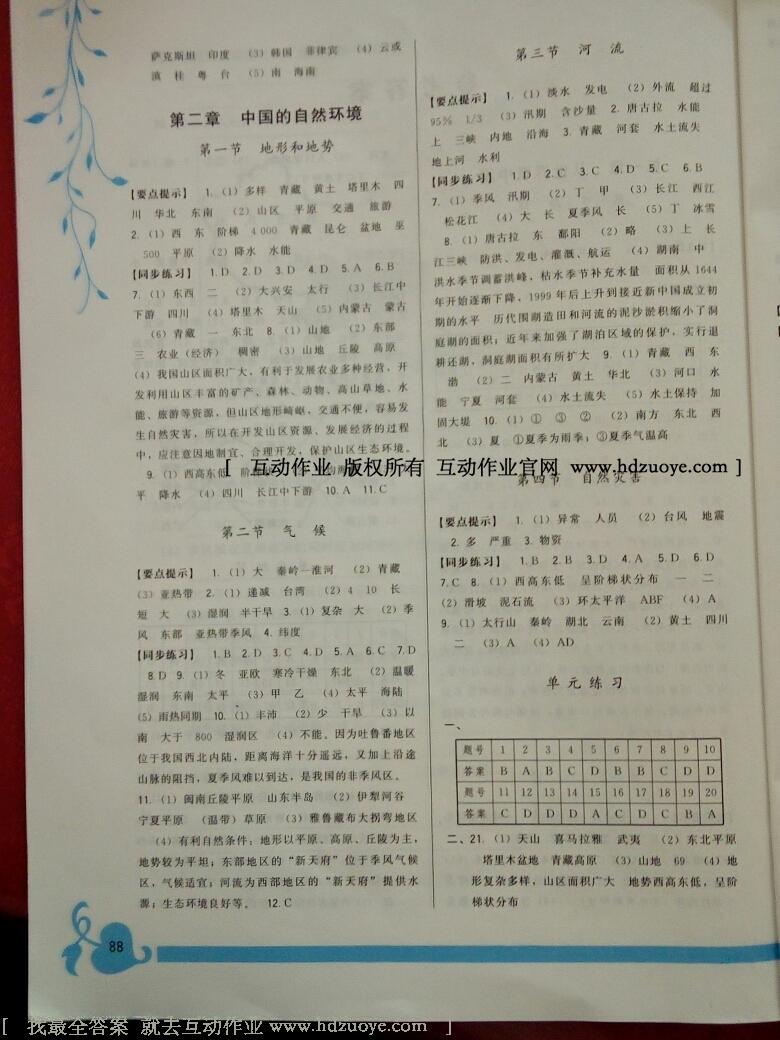 萨克斯坦 印度 (3)韩国 菲律宾 (4)云或
滇 桂 粤 台 (5)南 海南
第二章 中国的自然环境
第一节 地形和地势
【要点提示】 1.(1)多样 青藏 黄土 塔里木 四
川 华北 东南 (2)山区 平原 交通 旅游
2.(1)西 东 阶梯 4 000 青藏 昆仑 盆地 巫
500 平原 (2)降水 水能
【同步练习】 1.D 2.D 3.D 4.D 5.A 6.B
7.(1)东西 二 (2)大兴安 太行 (3)长江中
下游 四川 (4)塔里木 天山 (5)内蒙古 蒙古
(6)青藏 一 东北 8.(1)山地 (2)东部
三 农业(经济) 稠密 (3)山地 丘陵 高原
(4)我国山区面积广大,有利于发展农业多种经营,开
发利用山区丰富的矿产、森林、动物、高山草地、水
能、旅游等资源,但山区地形崎岖,交通不便,容易发
生自然灾害,所以在开发山区资源、发展经济的过程
中,应注意因地制宜、合理开发,保护山区生态环境。
9.(1)西高东低
平 降水 (4)四川 长江中下游 10.A 11.C
第二节 气候
【要点提示】 1.(1)大 秦岭—淮河 (2)青藏
(3)亚热带 2.(1)递减 台湾 (2)4 10 长
短 大 (3)湿润 半干旱 3.(1)复杂 大 (2)季
风 东部 亚热带季风 4.纬度
【同步练习】 1.B 2.D 3.C 4.D 5.A 6.C 7.D
8.D 9.(1)冬 亚欧 寒冷干燥 东北 (2)温暖
湿润 东南 太平 (3)甲 乙 (4)太平 海陆
(5)雨热同期 10.(1)丰沛 (2)少 干旱 (3)以
南 大于 800 湿润区 (4)不能。因为吐鲁番地区
位于我国西北内陆,距离海洋十分遥远,又加上沿途
山脉的阻挡,夏季风难以到达,是我国的非季风区。
11.(1)闽南丘陵平原 山东半岛 (2)伊犁河谷
宁夏平原 (温带)草原 (3)雅鲁藏布大拐弯地区
(4)有利自然条件:地形以平原、高原、丘陵为主,
地势较为平坦;东部地区的“新天府”位于季风气候
区,气候适宜;河流为西部地区的“新天府”提供水
源;生态环境良好等。 12.C
88
第三节 河流
【要点提示】 1.(1)淡水 发电 (2)外流 超过
95% 1/3 (3)汛期 含沙量 2.唐古拉 水能
上 三峡 内地 沿海 3.青藏 河套 水土流失
地上河 水利
【同步练习】 1.D 2.C 3.C 4.D 5.C 6.B
7.(1)季风 汛期 (2)丁 甲 (3)长江 西江
松花江 (4)大 长 夏季风 长 (5)丁 冰雪
8.(1)唐古拉 东 鄱阳 (2)略 (3)上 长
江三峡 防洪、发电、灌溉、航运 (4)湖南 中
洪水季节调蓄洪峰,枯水季节补充水量 面积从1644
年开始逐渐下降,1999年后上升到接近新中国成立初
期的水平 历代围湖造田和河流的泥沙淤积缩小了洞
庭湖的面积;近年来加强了湖泊区域的保护,实行退
耕还湖,洞庭湖面积有所扩大 9.(1)青藏 西 东
渤 (2)二 内蒙古 黄土 华北 (3)河口 水
能 宁夏 河套 (4)水土流失 (5)水土保持 加
固大堤 10.(1)① ③ ② (2)南方 东北 西
北 (3)夏 ①夏季为雨季;③夏季气温高
[ 互动作业 版权所有 互动作业官网 www.hdzuoye.com ]
第四节 自然灾害
【要点提示】 1.(1)异常 人员 (2)台风 地震
2.多 严重 3.物资
【同步练习】 1.B 2.B 3.D 4.A 5.D 6.D
7.C 8.(1)西高东低 呈阶梯状分布 一 二
(2)滑坡 泥石流 (3)环太平洋 ABF (4)A
9.(1)太行山 秦岭 湖北 云南 (2)黄土 四川
二 (3)A (4)AD
单元练习
一、
题号 1 2 3 4 5 6 7 8 9 10
答案 B A B C D B B C D D
题号 11 12 13 14 15 16 17 18 19 20
答案 C D D D A C D C B A
二、21.(1)天山 喜马拉雅 武夷 (2)东北平原
塔里木盆地 青藏高原 (3)山地 69 (4)地
形复杂多样,山区面积广大 地势西高东低,呈阶
梯状分布
[ 找最全答案 就去互动作业 www.hdzuoye.com ]